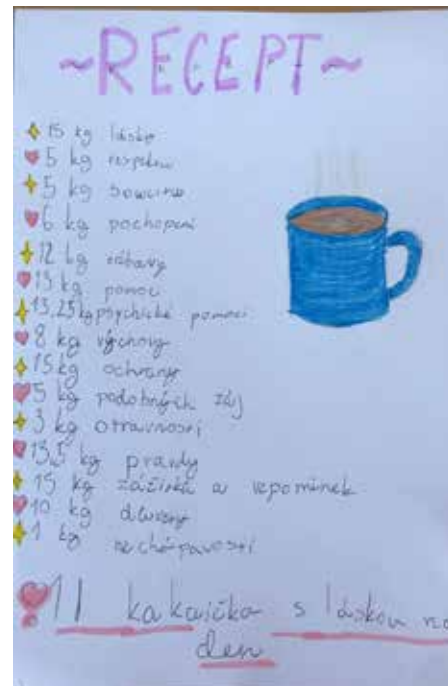 ~RECEPT~
15 kg lásky
5 kg respektu
5 kg soucitu
6 kg pochopení
12 kg zábavy
13 kg pomoc
13,25 kg psychické pomoci
8 kg výchovy
15 kg ochrany
5 kg podobných záj
3 kg otravnosti
13,5 kg pravdy
15 kg zážitků a vzpomínek
10 kg důvěry
1 kg nechápavosti
1 l kakaíčka s láskou na
den